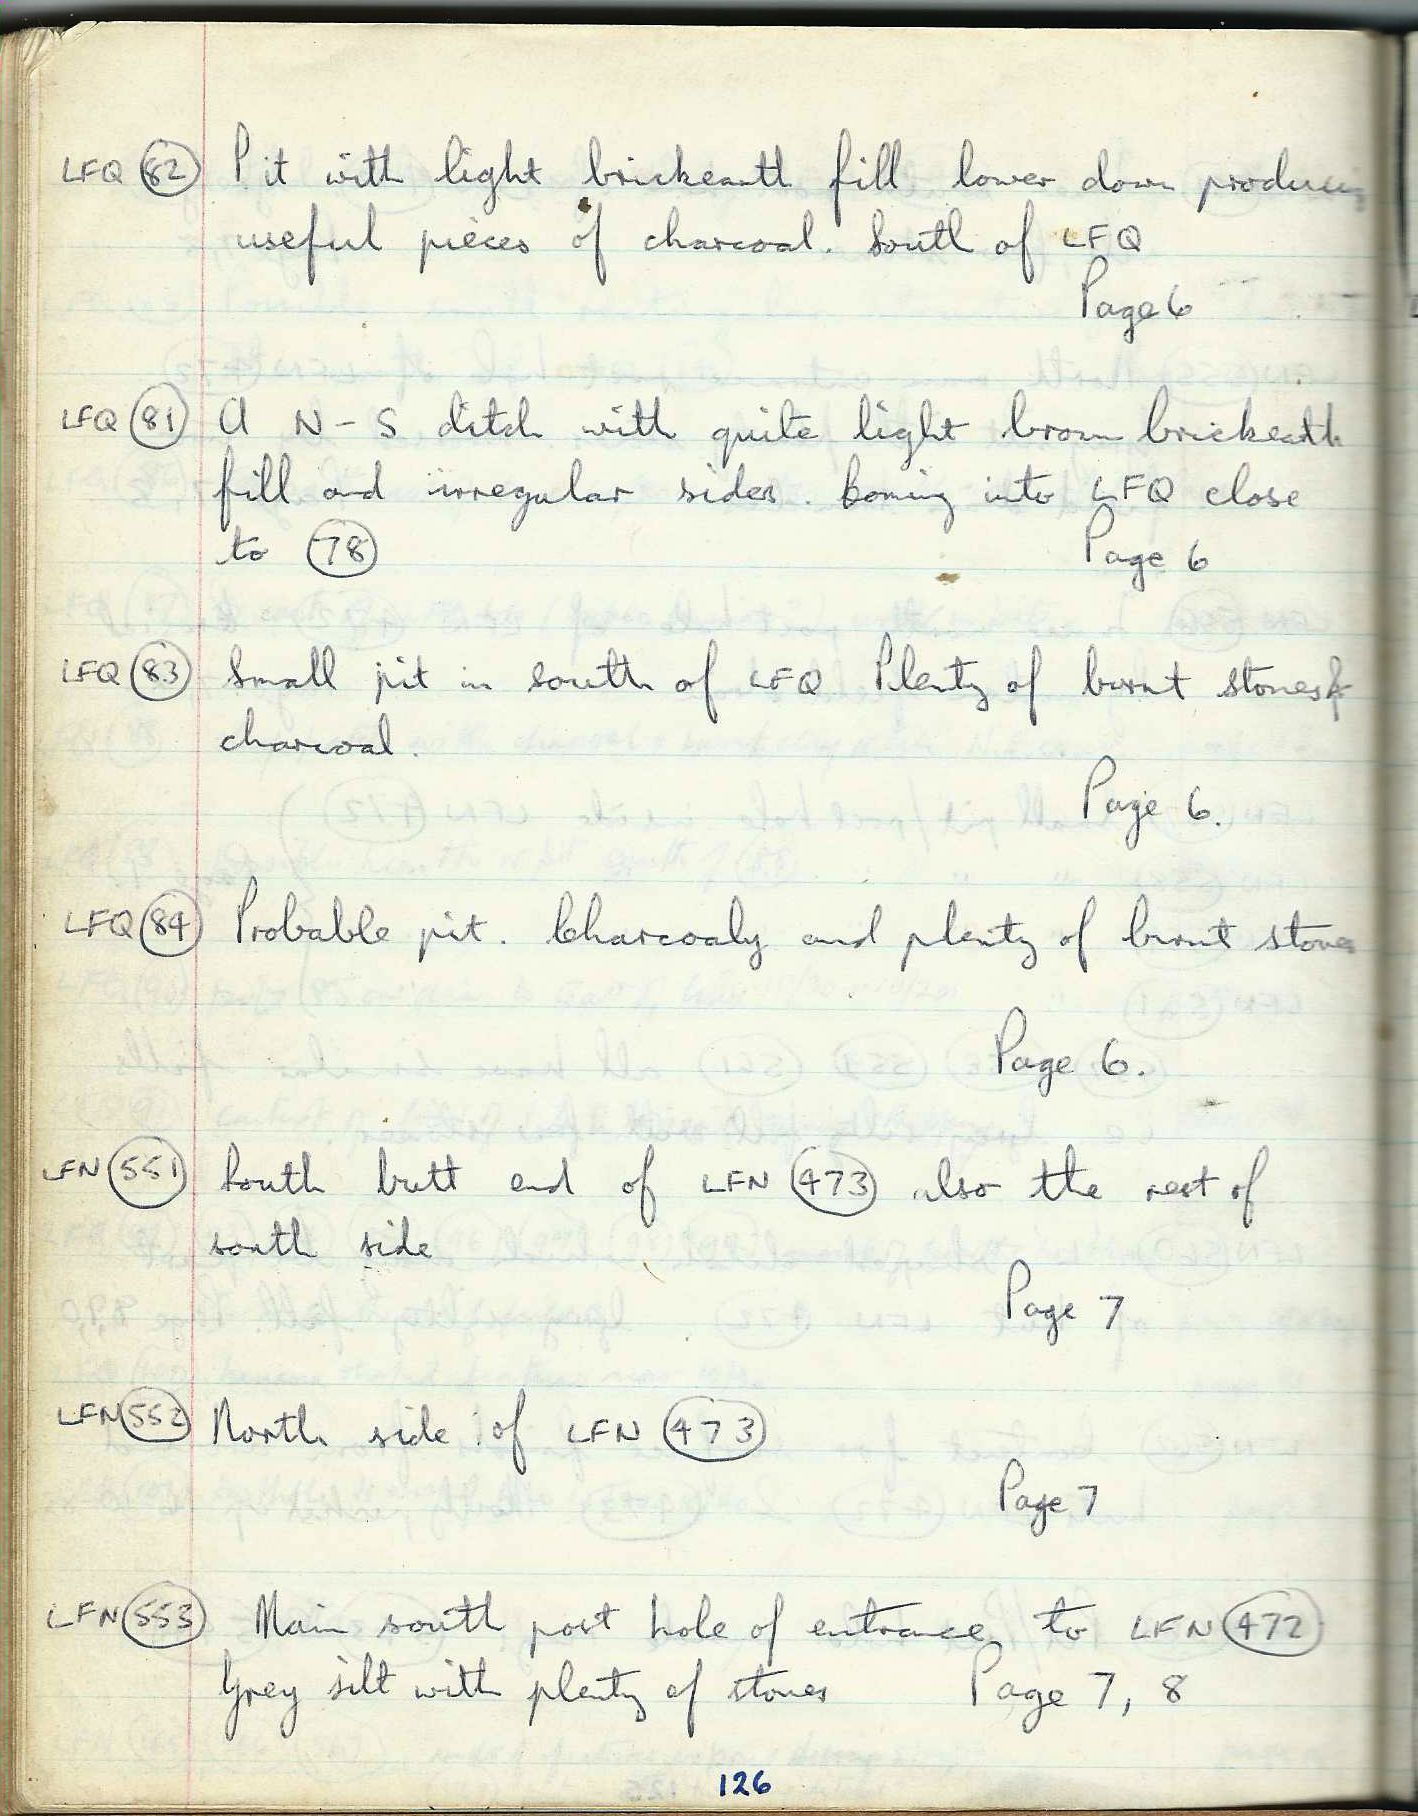 LFQ (82) Pit with light brickearth fill lower down producing
useful pieces of charcoal. South of LFQ
Page 6
LFQ (81) A N-S ditch with quite light brown brickearth
fill and irregular sides. Coming into LFQ close
to (78) Page 6
LFQ (83) Small pit in south of LFQ Plenty of burnt stones &
charcoal.
Page 6.
LFQ (84) Probable pit. Charcoaly and plenty of burnt stones
Page 6.
LFN (551) South butt end of LFN (473) also the rest of
south side
Page 7
LFN (552) North side of LFN (473)
Page 7
LFN (553) Main south post hole of entrance to LFN (472)
Grey silt with plenty of stones Page 7, 8
126